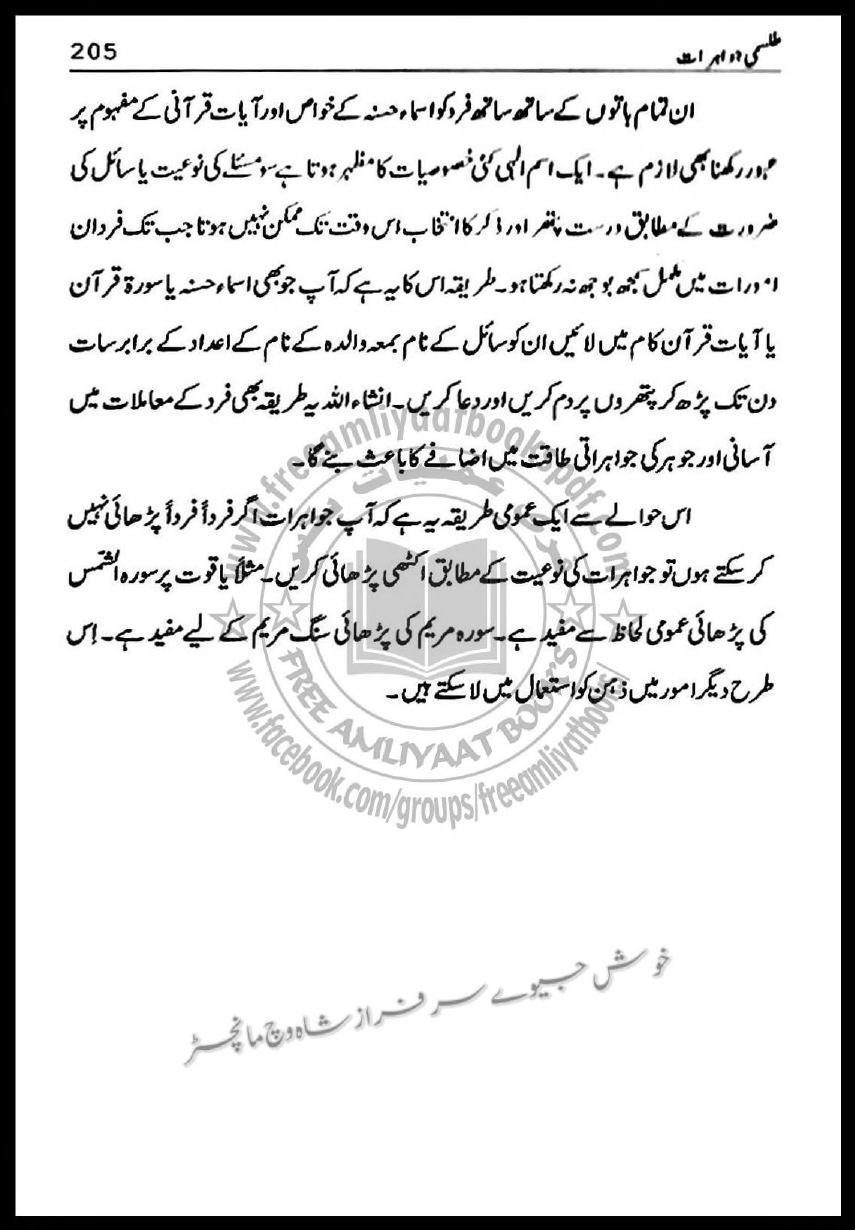 طلسمی جواہرات
205
ان تمام باتوں کے ساتھ ساتھ فرد کو اسماء حسنہ کے خواص اور آیات قرآنی کے مفہوم پر
عبور رکھنا بھی لازم ہے۔ ایک اسم الہی کئی خصوصیات کا مظہر ہوتا ہے سو مسئلے کی نوعیت یا سائل کی
ضرورت کے مطابق درست پتھر اور ذکر کا انتخاب اس وقت تک ممکن نہیں ہوتا جب تک فرد ان
امورات میں مکمل سمجھ بوجھ نہ رکھتا ہو۔ طریقہ اس کا یہ ہے کہ آپ جو بھی اسماء حسنہ یا سورۃ قرآن
یا آیات قرآن کام میں لائیں ان کو سائل کے نام بمعہ والدہ کے نام کے اعداد کے برابر سات
دن تک پڑھ کر پتھروں پر دم کریں اور دعا کریں۔ انشاء اللہ یہ طریقہ بھی فرد کے معاملات میں
آسانی اور جوہر کی جواہراتی طاقت میں اضافے کا باعث بنے گا۔
اس حوالے سے ایک عمومی طریقہ یہ ہے کہ آپ جواہرات اگر فرداً فرداً پڑھائی نہیں
کر سکتے ہوں تو جواہرات کی نوعیت کے مطابق اکٹھی پڑھائی کریں۔ مثلاً یاقوت پر سورہ الشمس
کی پڑھائی عمومی لحاظ سے مفید ہے۔ سورہ مریم کی پڑھائی سنگ مریم کے لیے مفید ہے۔ اِس
طرح دیگر امور میں ذہن کو استعمال میں لا سکتے ہیں۔
www.freeamliyaatbookspdf.com
FREE AMLIYAAT BOOK'S
www.facebook.com/groups/freeamliyatbooks
خوش جیوے سرفراز شاہ وچ مانچسٹر